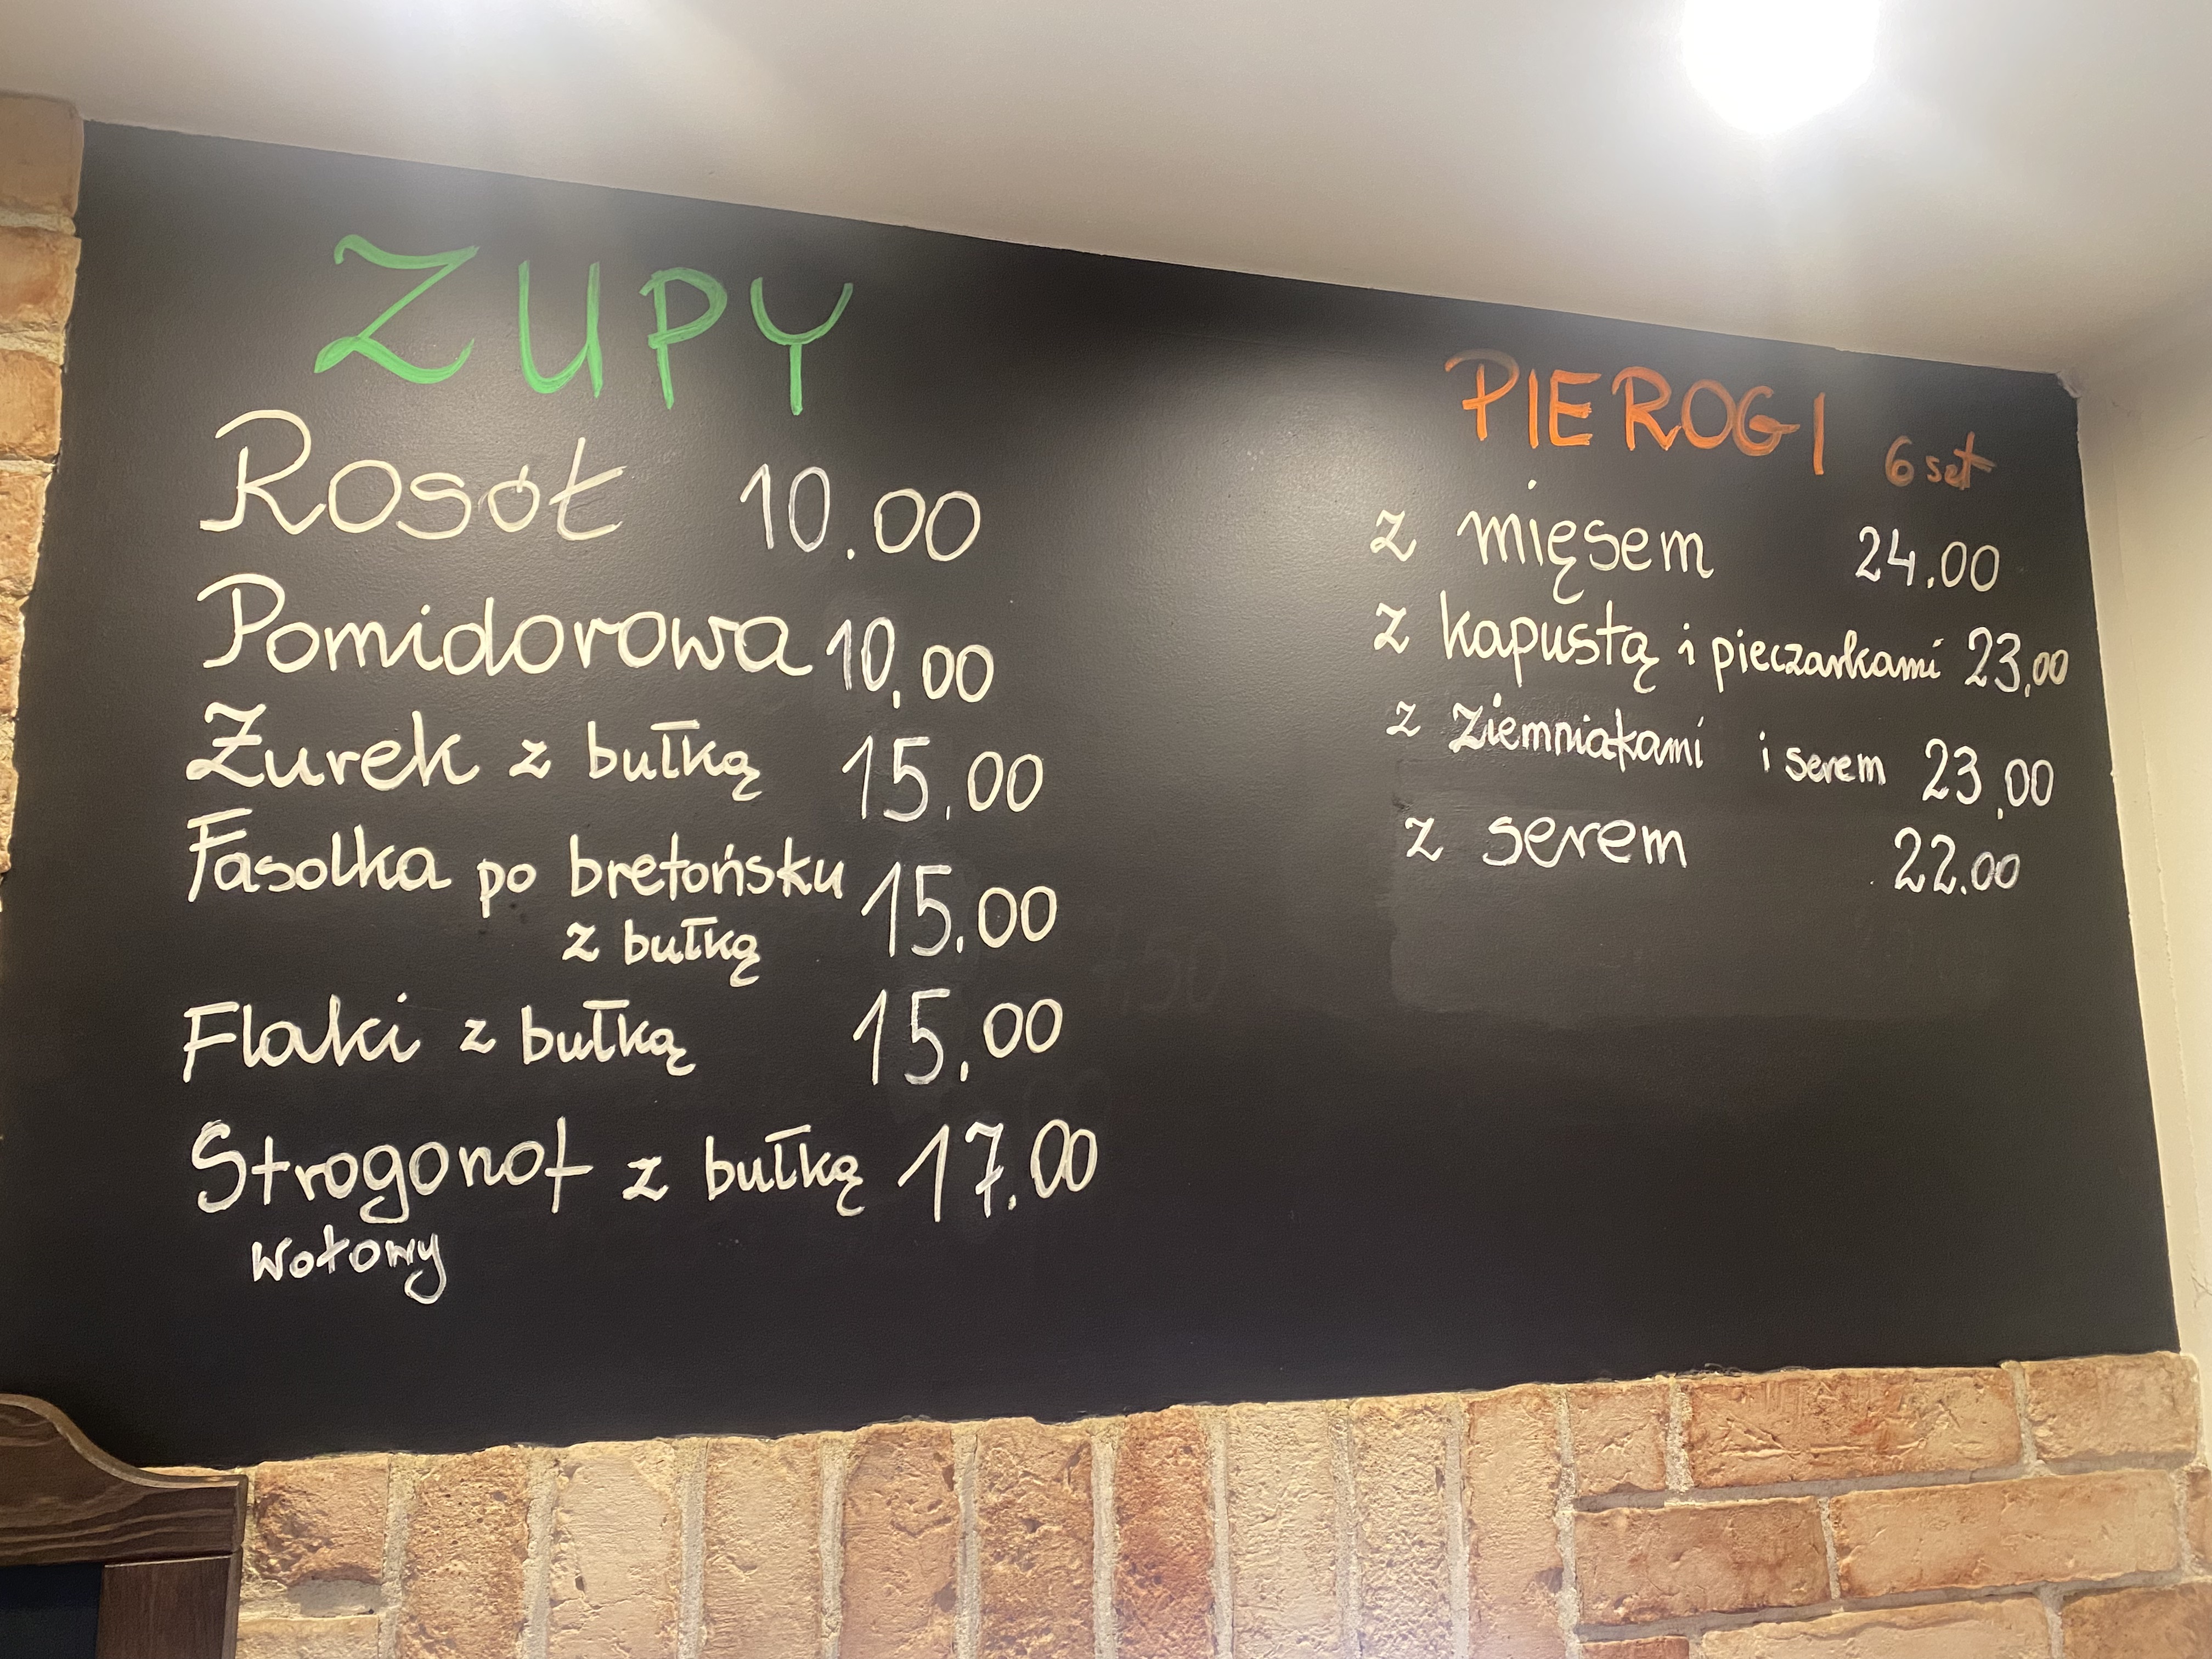 ZUPY
Rosół 10.00
Pomidorowa 10,00
Żurek z bułką 15,00
Fasolka po bretońsku 15.00
z bułką
Flaki z bułką 15,00
Strogonof z bułką 17.00
wołowy
PIEROGI 6 szt
z mięsem 24.00
z kapustą i pieczarkami 23,00
z ziemniakami i serem 23,00
z serem 22.00